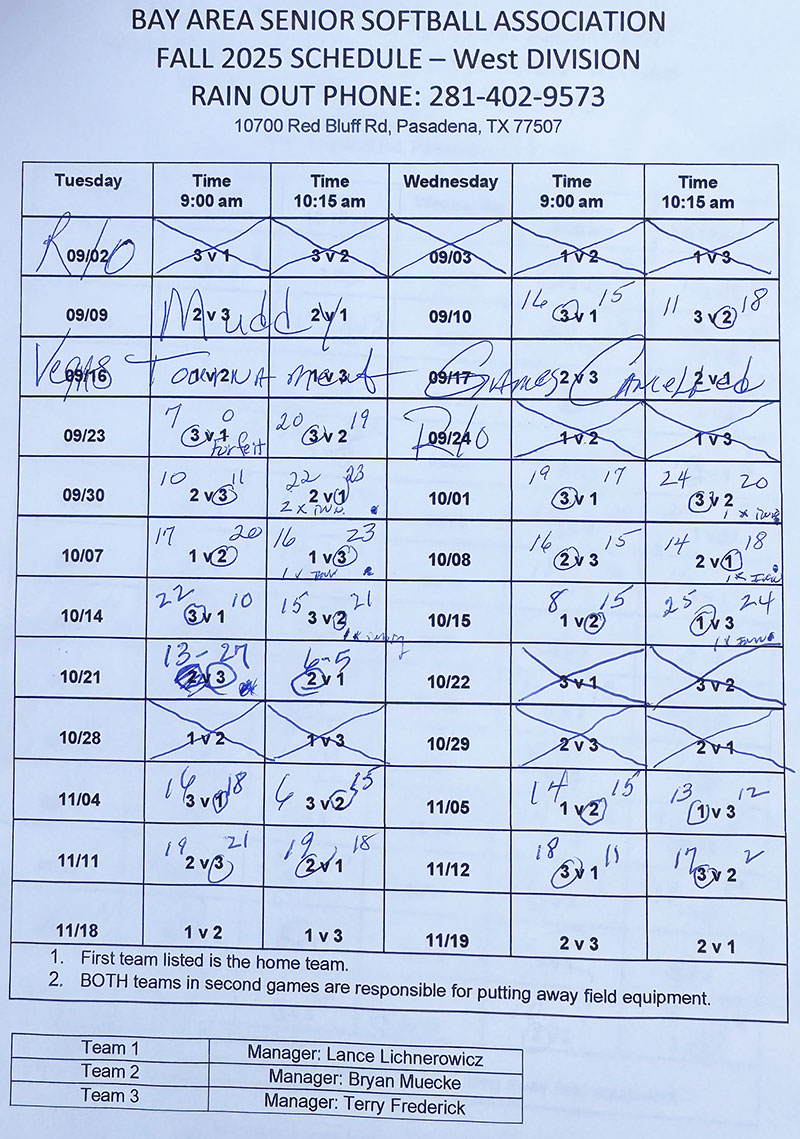 BAY AREA SENIOR SOFTBALL ASSOCIATION
FALL 2025 SCHEDULE – West DIVISION
RAIN OUT PHONE: 281-402-9573
10700 Red Bluff Rd, Pasadena, TX 77507
Tuesday Time 9:00 am Time 10:15 am Wednesday Time 9:00 am Time 10:15 am
R/O 09/02 3 v 1 3 v 2 09/03 1 v 2 1 v 3
09/09 Muddy 2 v 3 2 v 1 09/10 16 3 v 1 15 11 3 v 2 18
Vegas Tournament - Games Cancelled
09/16 1 v 2 1 v 3 09/17 2 v 3 2 v 1
09/23 7 3 v 1 0 Forfeit 20 3 v 2 19 R/O 09/24 1 v 2 1 v 3
09/30 10 2 v 3 11 22 2 v 1 23 2 x inn. 10/01 19 3 v 1 17 24 3 v 2 20 1 x inn
10/07 17 1 v 2 20 16 1 v 3 23 1 x inn 10/08 16 2 v 3 15 14 2 v 1 18 1 x inn
10/14 22 3 v 1 10 15 3 v 2 21 1 x inning 10/15 8 1 v 2 15 25 1 v 3 24 1 x inn
10/21 13 - 27 2 v 3 6-5 2 v 1 10/22 3 v 1 3 v 2
10/28 1 v 2 1 v 3 10/29 2 v 3 2 v 1
11/04 16 3 v 1 18 6 3 v 2 25 11/05 14 1 v 2 15 13 1 v 3 12
11/11 19 2 v 3 21 19 2 v 1 18 11/12 18 3 v 1 11 17 3 v 2 2
11/18 1 v 2 1 v 3 11/19 2 v 3 2 v 1
1. First team listed is the home team.
2. BOTH teams in second games are responsible for putting away field equipment.
Team 1 Manager: Lance Lichnerowicz
Team 2 Manager: Bryan Muecke
Team 3 Manager: Terry Frederick